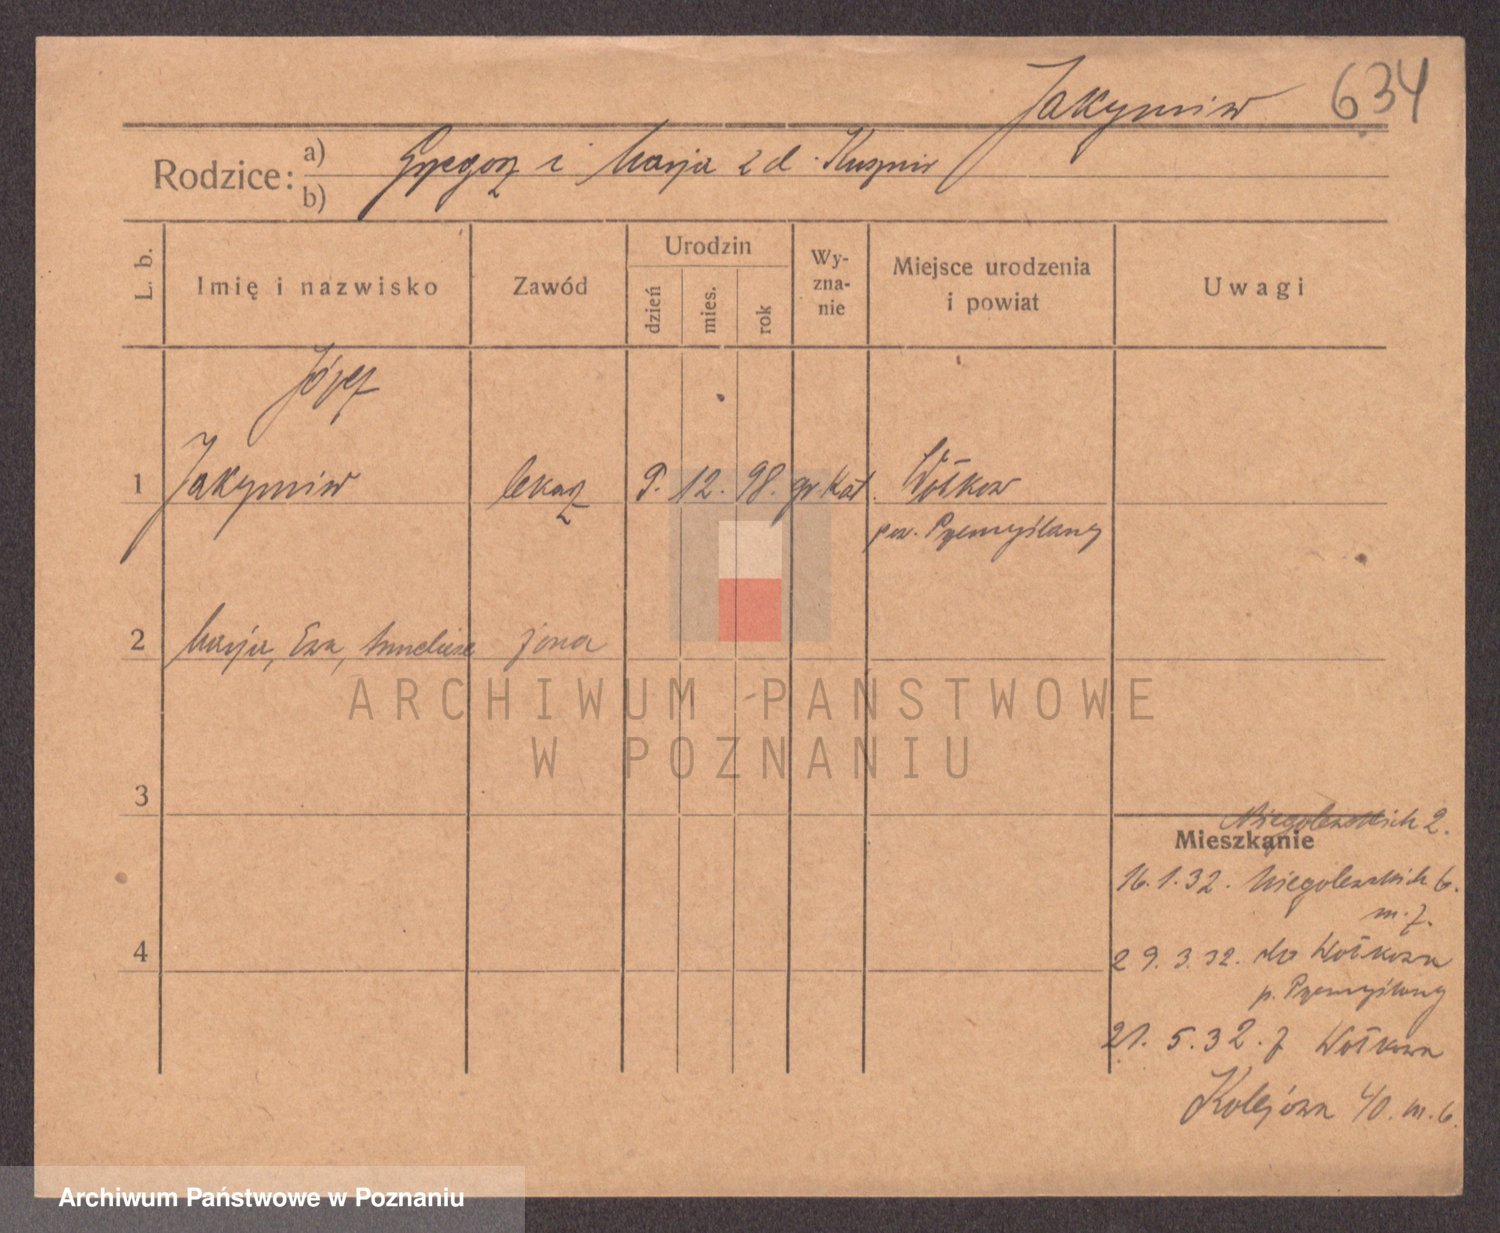 Jakymiw 634
Rodzice: a) Grzegorz i Marja z d. Kusznir
b)
L. b. Imię i nazwisko Zawód Urodzin dzień mies. rok Wy-zna-nie Miejsce urodzenia i powiat Uwagi
Józef
1 Jakymiw lekarz 9. 12. 98. gr kat. Wołkow
pow. Przemyślany
2 Marja, Ewa, żona
3
4
Niegolewskich 2.
Mieszkanie
16.1.32. Niegolewskich 6.
m. 7.
29.3.32. do Wołkowa
p. Przemyślany
21.5.32. z Wołkowa
Kolejowa 40. m. 6.
ARCHIWUM PAŃSTWOWE
W POZNANIU
Archiwum Państwowe w Poznaniu